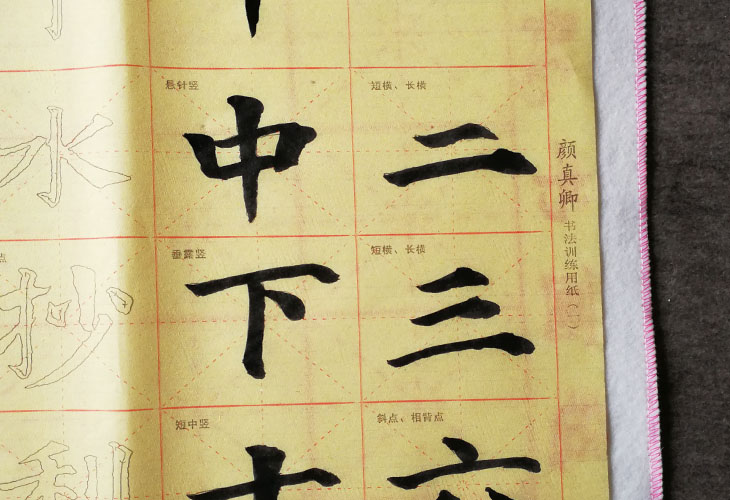 颜真卿 书法训练用纸（一）
短横、长横
二
短横、长横
三
斜点、相背点
六
悬针竖
中
垂露竖
下
短中竖
水
抄
利